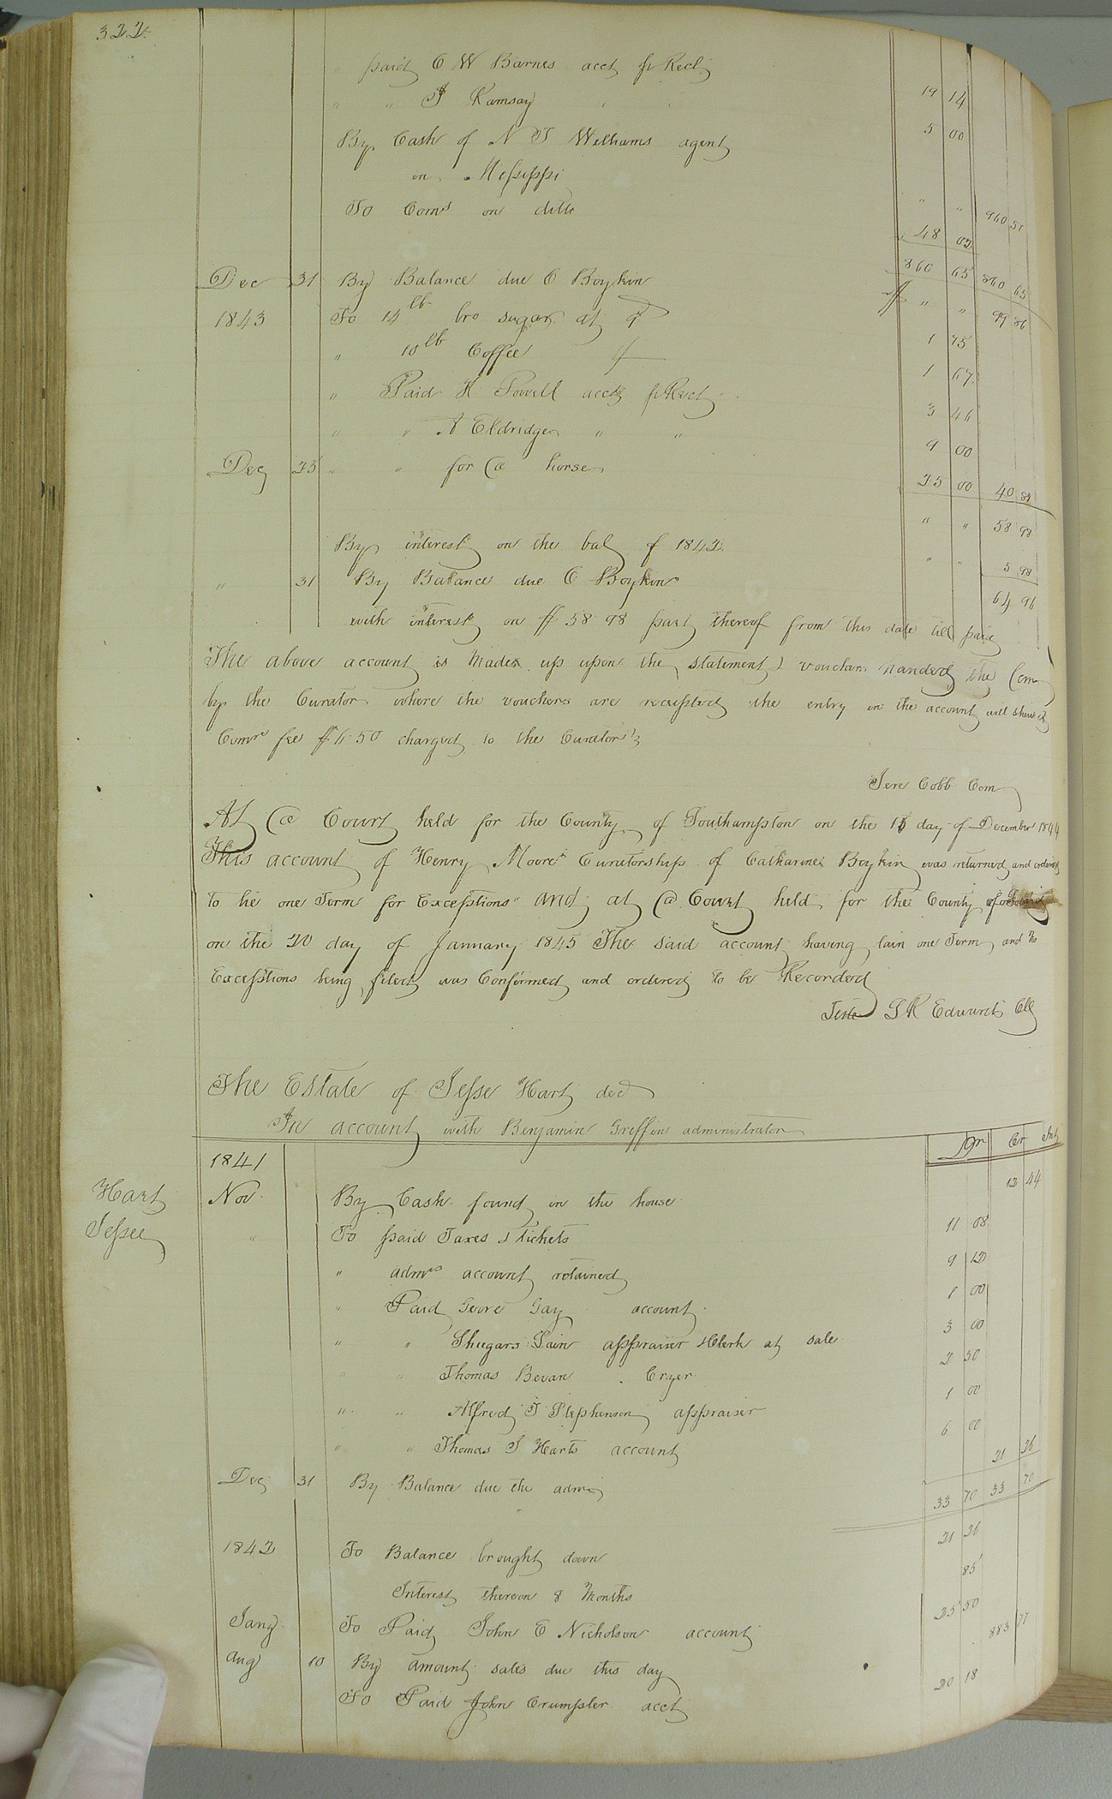 322
paid C W Barnes acct p Rect 19 14
" " J Ramsay " 5 00
By Cash of N T Williams agent
in Missisppi " " 960 51
To Coms on ditto 48 02
860 65 860 65
Dec 31 By Balance due C Boykin " " 99 86
1843 To 14 lb bro sugar at 9 1 75
" 10 lb Coffee 1 67
" Paid H Powell acct p Rect 3 46
" " A Eldridge " " 9 00
Dec 25 " " for @ horse 25 00 40 88
" " 58 98
By interest on the bal of 1842 " " 5 98
" 31 By Balance due C Boykin 64 96
with interest on $58 98 part thereof from this date till paid
The above account is made up upon the statement & vouchers handed the Com
by the Curator where the vouchers are receipted the entry in the account will shew it
Comrs fee $4 50 charged to the Curator
Jere Cobb Com
At @ Court held for the County of Southampton on the 16 day of December 1844
This account of Henry Moores Curatorship of Catharine Boykin was returned and ordered
to lie one Term for Exceptions and at @ Court held for the County of
on the 20 day of January 1845 The said account having lain one Term and no
Exceptions being filed was Confirmed and ordered to be Recorded
Teste L R Edwards Clk
The Estate of Jesse Hart decd
In account with Benjamin Griffin administrator
Dr Cr
1841
Hart Jessee
Nov By Cash found in the house 12 44
" To paid Taxes & Tickets 11 08
" admrs account retained 9 12
" Paid George Gay account 1 00
" " Shugars Lain appraiser & Clerk at sale 3 00
" " Thomas Bevan Cryer 2 50
" " Alfred J Stephenson appraiser 1 00
" " Thomas J Harts account 6 00
Dec 31 By Balance due the admr 21 26
33 70 33 70
1842 To Balance brought down 21 26
Interest thereon 8 Months 85
Jany To Paid John E Nicholson account 25 50
Aug 10 By amount sales due this day 883 77
To Paid John Crumpler acct 20 18